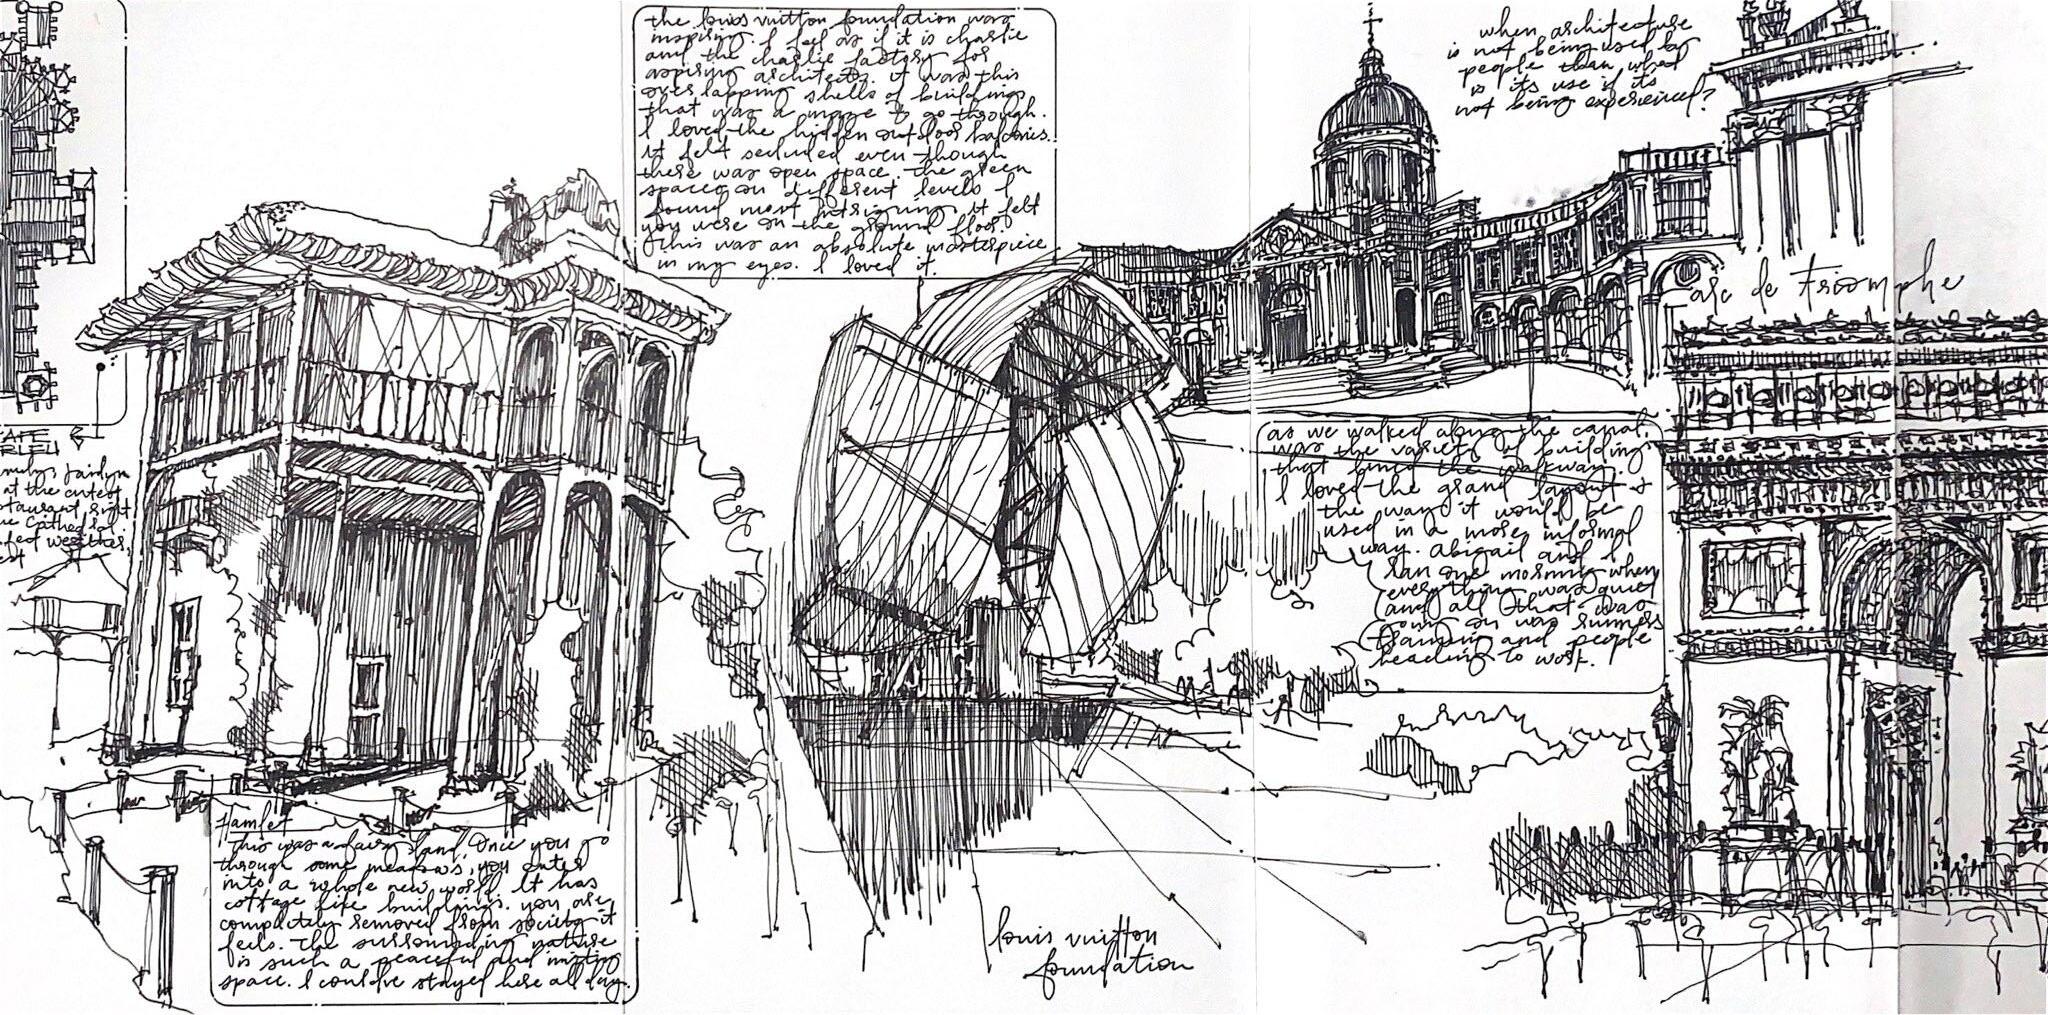 the louis vuitton foundation was
inspiring. I feel as if it is charlie
and the charlie factory for
aspiring architects. it was this
overlapping shells of buildings
that was a maze to go through.
I loved the hidden outdoor balconies.
it felt secluded even though
there was open space. the green
spaces on different levels I
found most intriguing. it felt
you were on the ground floor.
this was an absolute masterpiece
in my eyes. I loved it.
when architecture
is not being used by
people than what
is its use if its
not being experienced?
arc de triomphe
as we walked along the canal,
was the variety of building
that lined the walkway.
I loved the grand layout &
the way it would be
used in a more informal
way. abigail and I
ran one morning when
everything was quiet
and all that was
on was runners
training and people
heading to work.
CAFE
BLEU
at the cutest
restaurant right
Cathedral.
Hamlet
this was a fairy land. Once you go
through some meadows, you enter
into a whole new world. It has
cottage like buildings. you are
completely removed from society it
feels. the surrounding nature
is such a peaceful and inviting
space. I could've stayed here all day.
louis vuitton
foundation